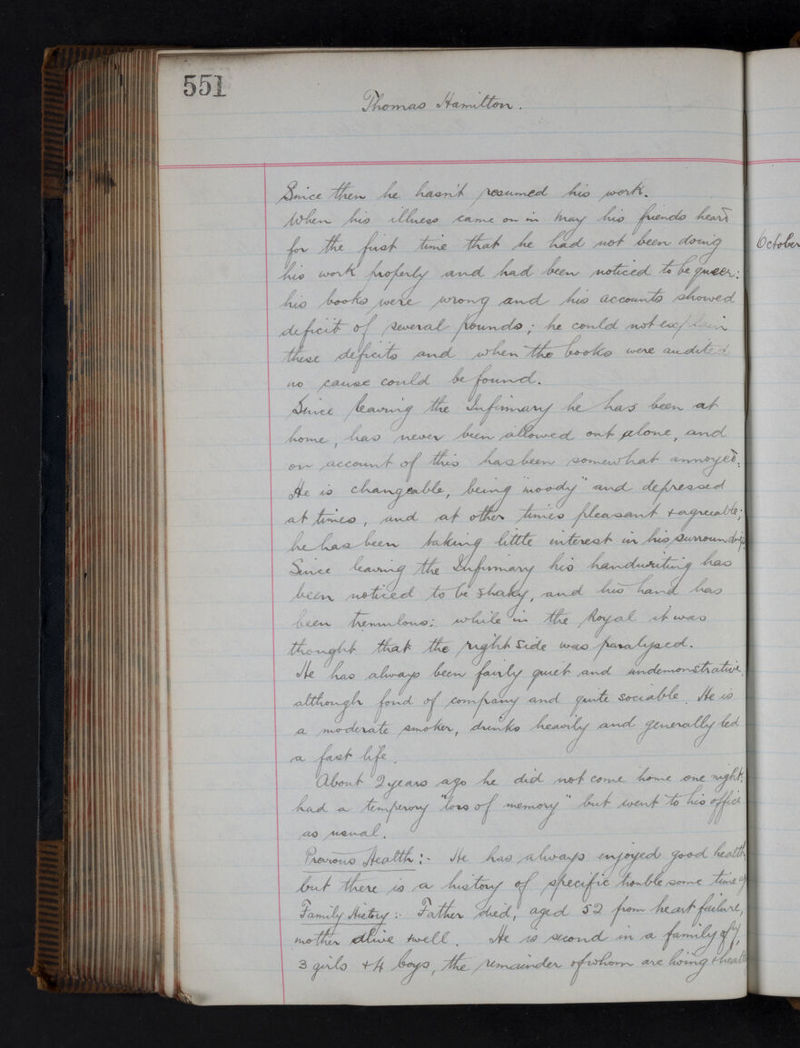 551
Thomas Hamilton.
Since then he hasn't resumed his work.
When his illness came on in May his friends heard
for the first time that he had not been doing
his work properly and had been noticed to be queer:
his books were wrong and his accounts showed
deficit of several pounds; he could not explain
these deficits and when the books were audited
no cause could be found.
Since leaving the Infirmary he has been at
home, has never been allowed out alone, and
on account of this has been somewhat annoyed.
He is changeable, being "moody" and depressed
at times, and at other times pleasant & agreeable;
he has been taking little interest in his surroundings
Since leaving the Infirmary his handwriting has
been noticed to be shaky, and his hand has
been tremulous: while in the Royal it was
thought that the right side was paralysed.
He has always been fairly quiet and undemonstrative,
although fond of company and quite sociable. He is
a moderate smoker, drinks heavily and generally led
a fast life.
About 2 years ago he did not come home one night,
had a temperory "loss of memory" but went to his office
as usual.
Previous Health:- He has always enjoyed good health
but there is a history of specific trouble some time
Family History:- Father died, aged 52 from heart failure,
mother alive & well. He is second in a family of 7,
3 girls & 4 boys, the remainder of whom are living &
October